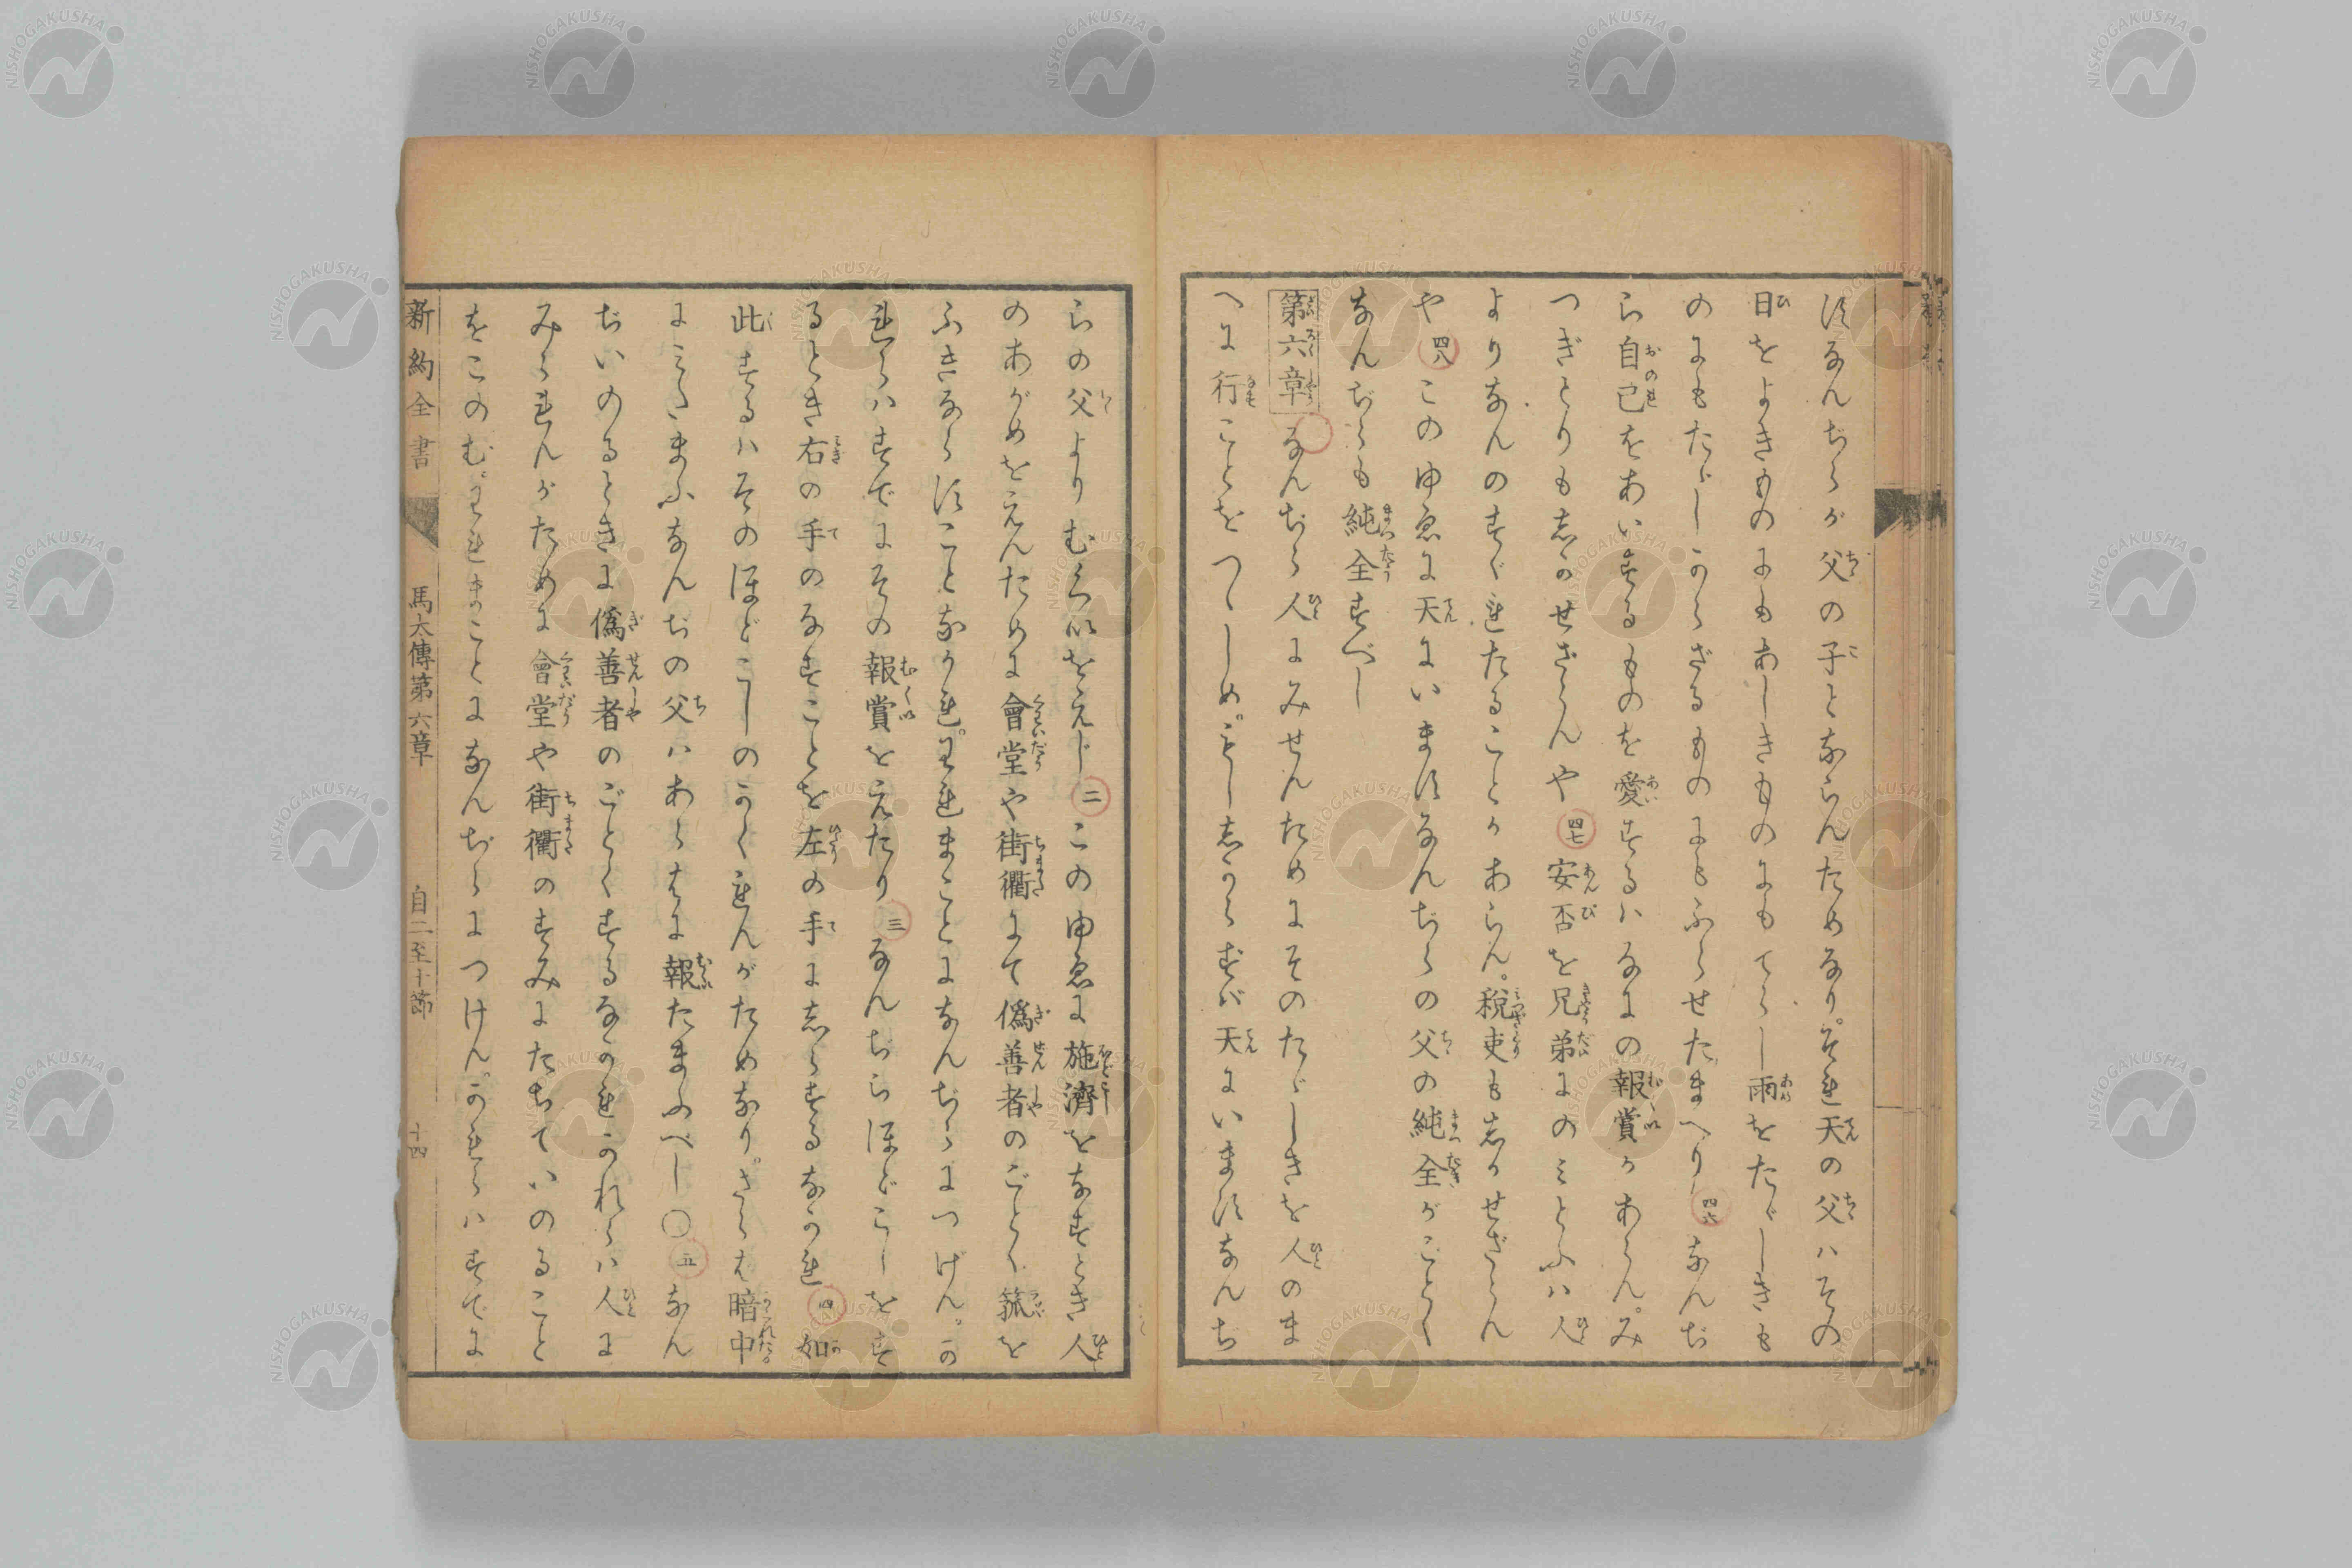 すなんぢらが父の子とならんためなり。それ天の父ハその
日をよきものにもあしきものにもてらし雨をたゞしきも
のにもたゞしからざるものにもふらせたまへり 四六 なんぢ
ら自己をあいするものを愛するハなにの報賞かあらん。み
つぎとりも志かせざらんや 四七 安否を兄弟にのミとふハ人
よりなんのすぐれたることかあらん。税吏も志かせざらん
や 四八 このゆゑに天にいますなんぢらの父の純全がごとく
なんぢらも純全すべし
第六章 なんぢら人にみせんためにそのたゞしきを人のま
へに行ことをつゝしめ。もし志からずバ天にいますなんぢ
らの父よりむくいをえじ 二 このゆゑに施濟をなすとき人
のあがめをえんために會堂や街衢にて偽善者のごとく箛を
ふきならすことなかれ。われまことになんぢらにつげん。か
れらハすでにその報賞をえたり 三 なんぢらほどこしをす
るとき右の手のなすことを左の手に志らするなかれ 四 如
此するハそのほどこしのかくれんがためなり。さらば暗中
にミたまふなんぢの父ハあらはに報たまふべし 〇 五 なん
ぢいのるときに偽善者のごとくするなかれかれらハ人に
みられんがために會堂や街衢のすみにたちていのること
をこのむ。われまことになんぢらにつげん。かれらハすでに
新約全書 馬太傳第六章 自二至十節 十四